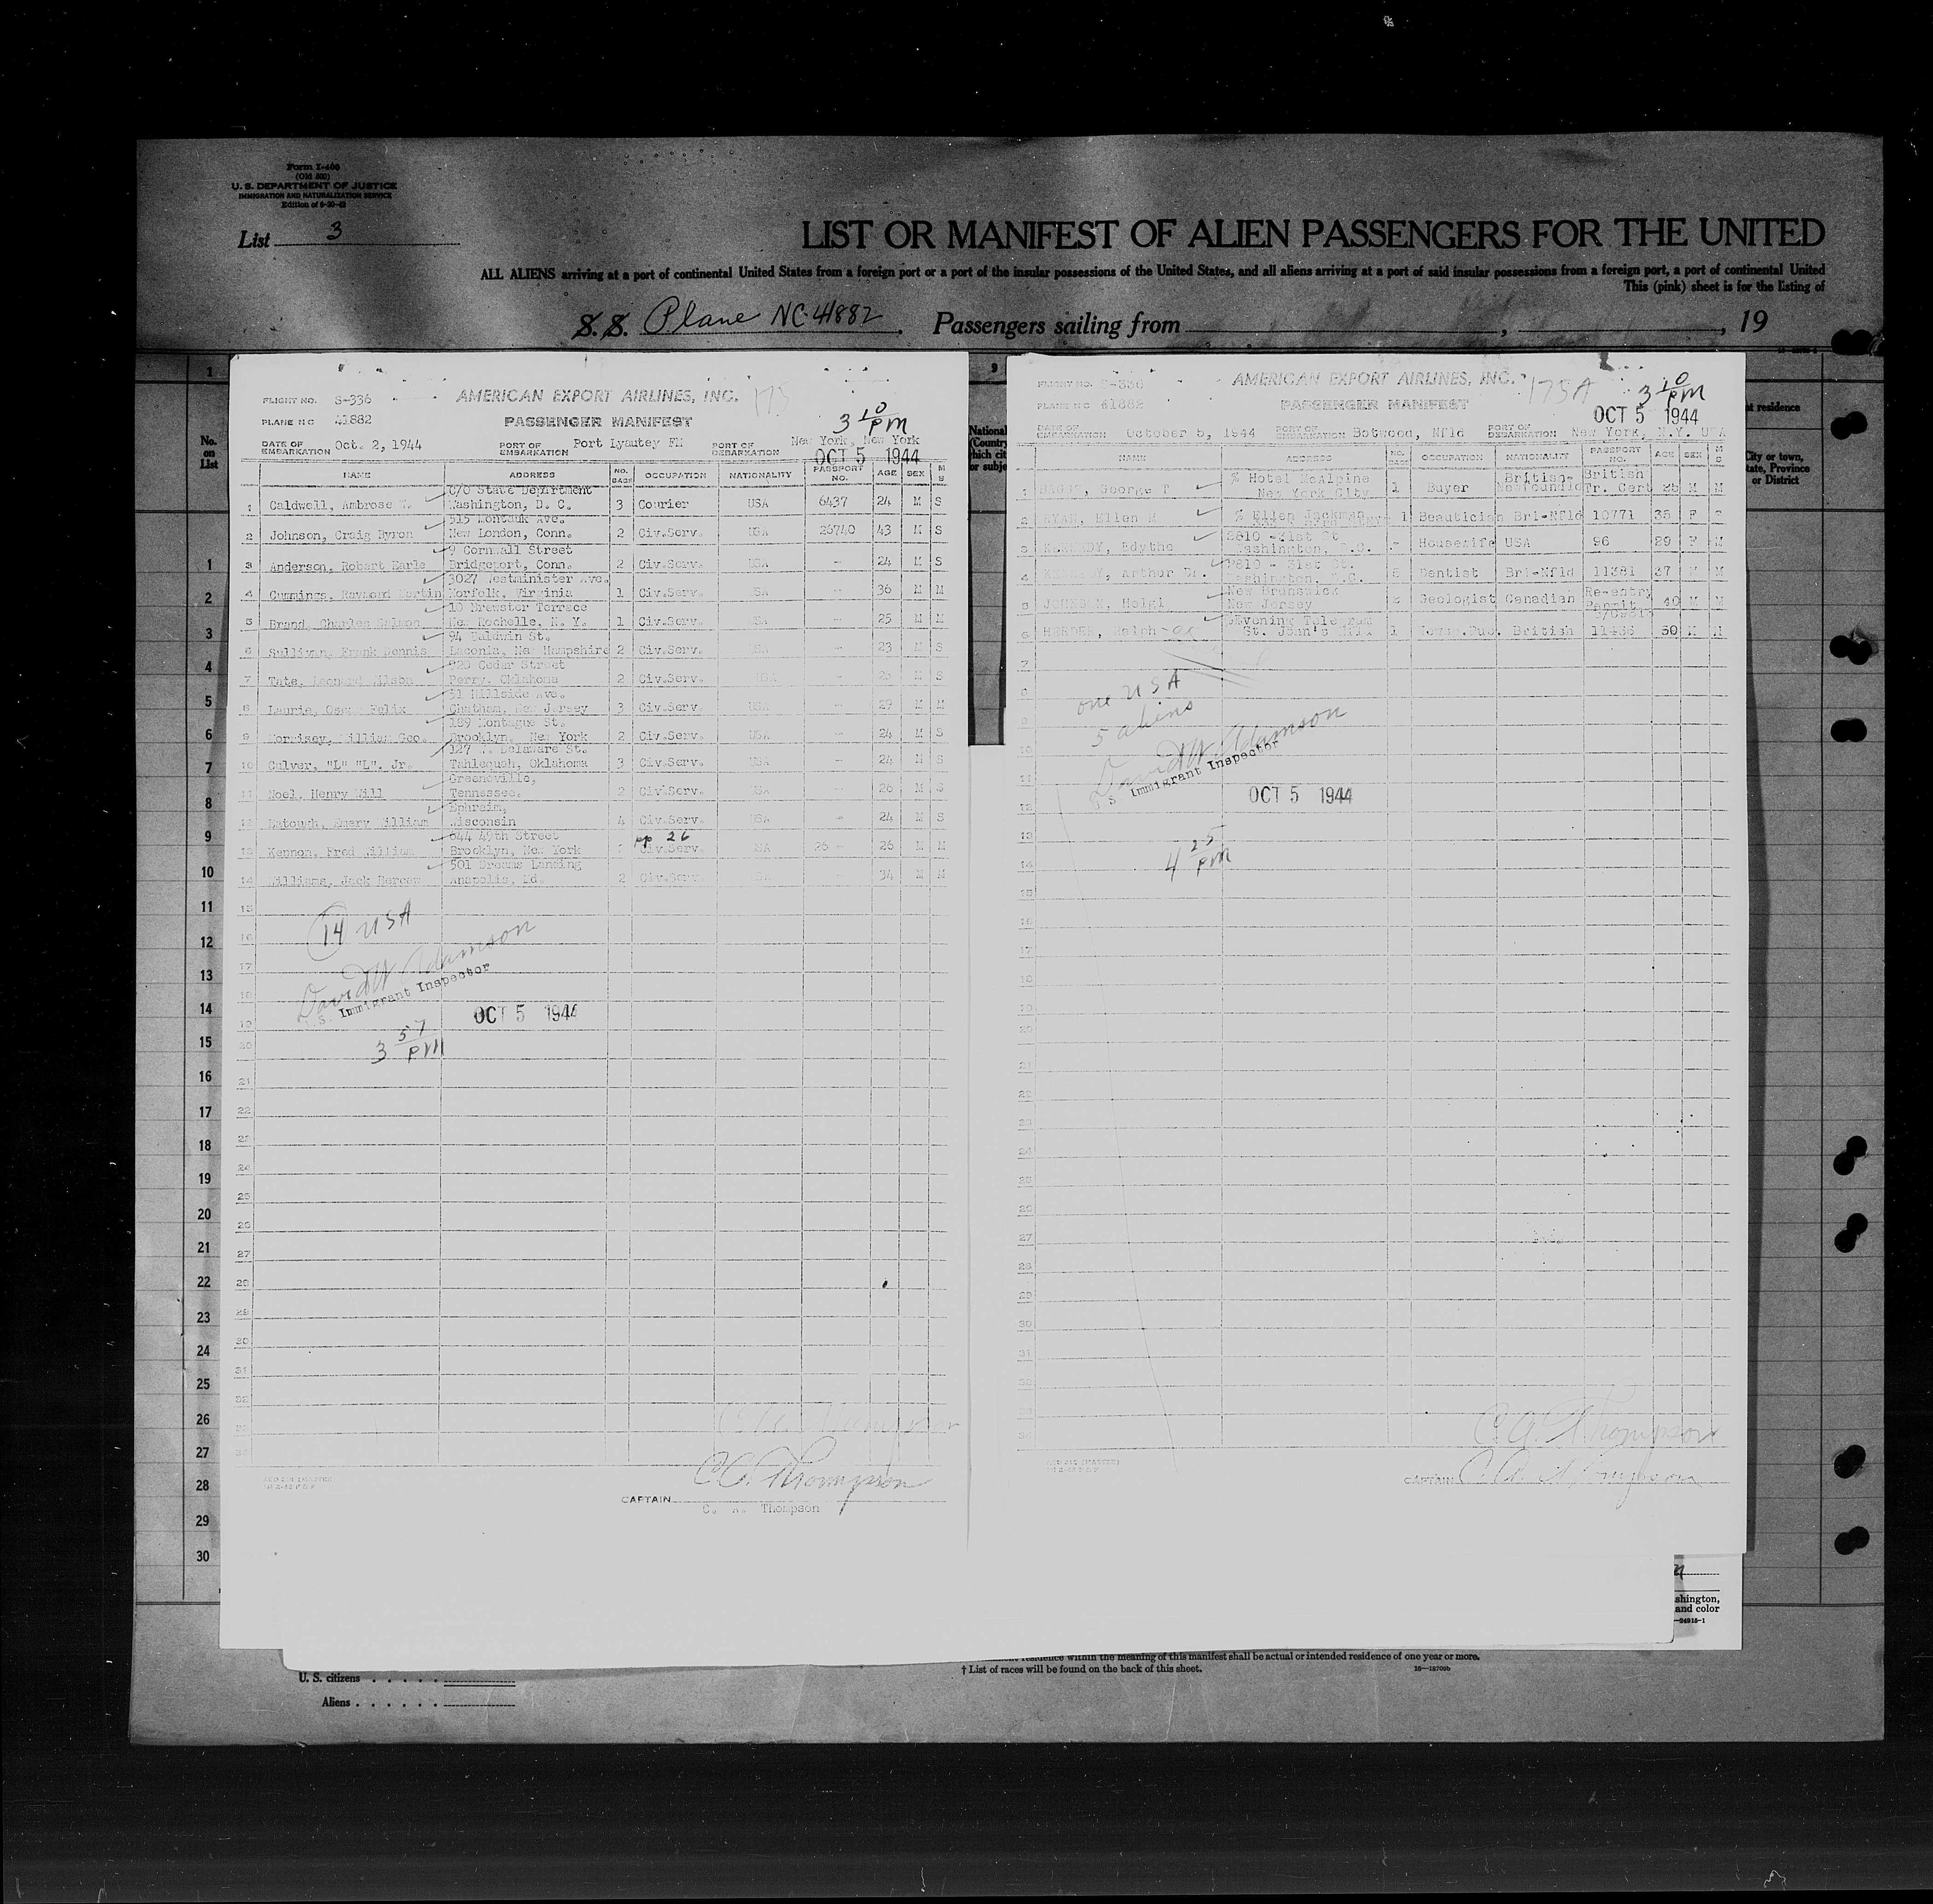 Form I-466
(Old 500)
U. S. DEPARTMENT OF JUSTICE
IMMIGRATION AND NATURALIZATION SERVICE
List 3
LIST OR MANIFEST OF ALIEN PASSENGERS FOR THE UNITED
ALL ALIENS arriving at a port of continental United States from a foreign port or a port of the insular possessions of the United States, and all aliens arriving at a port of said insular possessions from a foreign port, a port of continental United
This (pink) sheet is for the listing of
S. S. Plane NC-41882. Passengers sailing from , , 19
1
No.
on
List
1
2
3
4
5
6
7
8
9
10
11
12
13
14
15
16
17
18
19
20
21
22
23
24
25
26
27
28
29
30
AMERICAN EXPORT AIRLINES, INC.
FLIGHT NO. S-336
PLANE NC 41882
PASSENGER MANIFEST
3 10 PM
DATE OF EMBARKATION Oct. 2, 1944 PORT OF EMBARKATION Port Lyautey FM PORT OF DEBARKATION New York, New York
OCT 5 1944
NAME ADDRESS NO. BAGS OCCUPATION NATIONALITY PASSPORT NO. AGE SEX M S
C/O State Department
1 Caldwell, Ambrose Washington, D. C. 3 Courier USA 6437 24 M S
515 Montauk Ave.
2 Johnson, Craig Byron New London, Conn. 2 Civ.Serv. USA 26740 43 M S
9 Cornwall Street
3 Anderson, Robert Earle Bridgeport, Conn. 2 Civ.Serv. USA - 24 M S
3027 Westminister Ave.
4 Cummings, Raymond Martin Norfolk, Virginia 1 Civ.Serv. USA - 36 M M
10 Brewster Terrace
5 Brand, Charles New Rochelle, N. Y. 1 Civ.Serv. USA - 25 M M
94 Baldwin St.
6 Sullivan, Frank Dennis Laconia, New Hampshire 2 Civ.Serv. USA - 23 M S
920 Cedar Street
7 Tate, Leonard Wilson Perry, Oklahoma 2 Civ.Serv. USA - M S
51 Hillside Ave.
8 Laurie, Oscar Felix Chatham, New Jersey 3 Civ.Serv. USA - 29 M M
189 Montague St.
9 Morrisey, William Geo. Brooklyn, New York 2 Civ.Serv. USA - 24 M S
127 W. Delaware St.
10 Culver, "L" "L". Jr. Tahlequah, Oklahoma 3 Civ.Serv. USA - 24 M S
Greenville,
11 Noel, Henry Will Tennessee. 2 Civ.Serv. USA - 26 M S
Ephraim,
12 Emery William Wisconsin 4 Civ.Serv. USA - 24 M S
644 49th Street pp 26
13 Kennon, Fred William Brooklyn, New York Civ.Serv. USA 26 - 26 M M
501 Landing
14 Williams, Jack Anapolis, Md. 2 Civ.Serv. USA - 34 M M
14 USA
David W Adamson
U. S. Immigrant Inspector
OCT 5 1944
3 57 PM
C. A. Thompson
CAPTAIN
C. A. Thompson
FLIGHT NO. S-336
AMERICAN EXPORT AIRLINES, INC. 175A
PLANE NC 41882
PASSENGER MANIFEST
3 10 PM
OCT 5 1944
DATE OF EMBARKATION October 5, 1944 PORT OF EMBARKATION Botwood, Nfld PORT OF DEBARKATION New York, N.Y. USA
NAME ADDRESS NO. BAGS OCCUPATION NATIONALITY PASSPORT NO. AGE SEX M S
% Hotel McAlpine British- British
1 George T New York City 1 Buyer Newfoundld Tr. Cert 25 M M
2 RYAN, Ellen M % Ellen Jackman 1 Beautician Bri-Nfld 10771 35 F S
3810 - 31st St
3 KENNEDY, Edythe Washington, D.C. - Housewife USA 96 29 F M
3810 - 31st St.
4 KENNEDY, Arthur Dr. Washington, D.C. Dentist Bri-Nfld 11381 37 M M
New Brunswick Re-entry
5 JOHNSON, Helgi New Jersey Geologist Canadian Permit 40 M M
Evening Telegram
6 HERDER, Ralph St. John's Nfld 1 Newsp.Pub. British 11436 50 M M
one USA
5 aliens
David W. Adamson
U. S. Immigrant Inspector
OCT 5 1944
4 25 PM
C. A. Thompson
CAPTAIN C. A. Thompson
U. S. citizens
Aliens
residence within the meaning of this manifest shall be actual or intended residence of one year or more.
† List of races will be found on the back of this sheet.